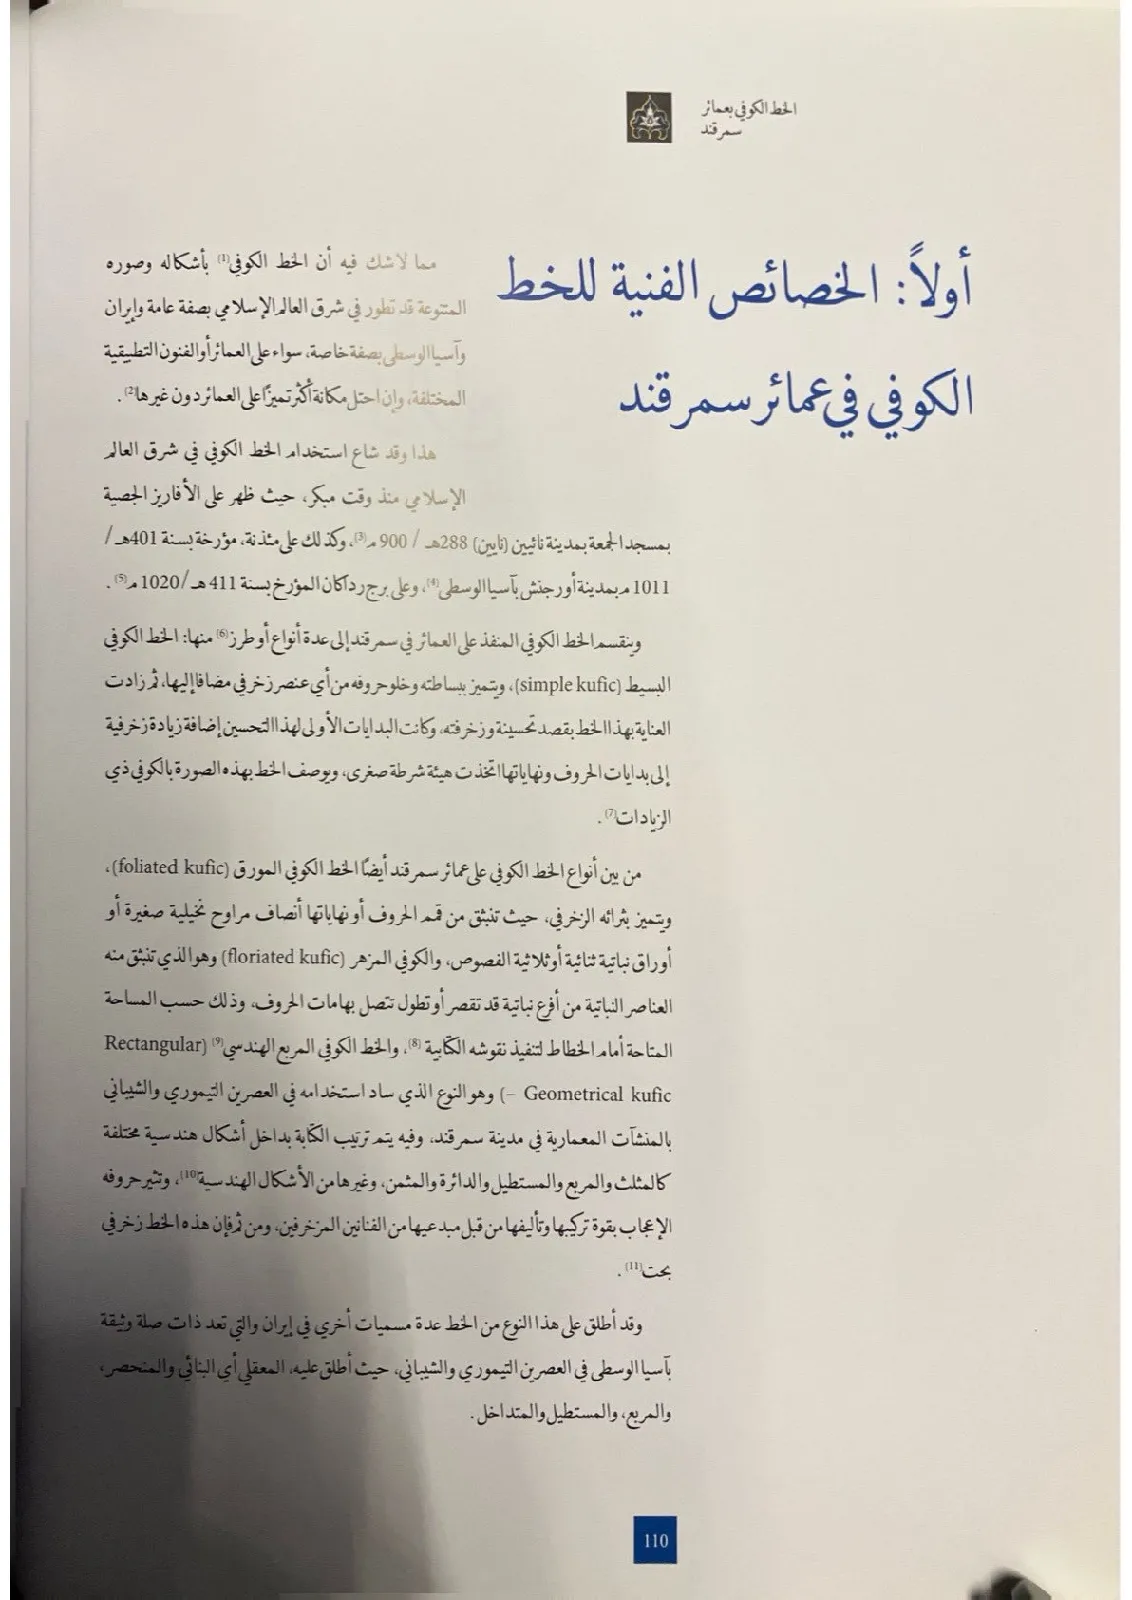 الخط الكوفي بعمائر
سمرقند
أولاً: الخصائص الفنية للخط
الكوفي في عمائر سمرقند
مما لاشك فيه أن الخط الكوفي(1) بأشكاله وصوره
المتنوعة قد تطور في شرق العالم الإسلامي بصفة عامة وإيران
وآسيا الوسطى بصفة خاصة، سواء على العمائر أو الفنون التطبيقية
المختلفة، وإن احتل مكانة أكثر تميزًا على العمائر دون غيرها(2).
هذا وقد شاع استخدام الخط الكوفي في شرق العالم
الإسلامي منذ وقت مبكر، حيث ظهر على الأفاريز الجصية
بمسجد الجمعة بمدينة نائيين (نايين) 288هـ / 900 م(3)، وكذلك على مئذنة، مؤرخة بسنة 401هـ/
1011 م بمدينة أورجنش بآسيا الوسطى(4)، وعلى برج رداكان المؤرخ بسنة 411 هـ/1020 م(5).
وينقسم الخط الكوفي المنفذ على العمائر في سمرقند إلى عدة أنواع أو طرز(6) منها: الخط الكوفي
البسيط (simple kufic)، ويتميز ببساطته وخلو حروفه من أي عنصر زخرفي مضافا إليها، ثم زادت
العناية بهذا الخط بقصد تحسينة وزخرفته، وكانت البدايات الأولى لهذا التحسين إضافة زيادة زخرفية
إلى بدايات الحروف ونهاياتها اتخذت هيئة شرطة صغرى، ويوصف الخط بهذه الصورة بالكوفي ذي
الزيادات(7).
من بين أنواع الخط الكوفي على عمائر سمرقند أيضًا الخط الكوفي المورق (foliated kufic)،
ويتميز بثرائه الزخرفي، حيث تنبثق من قمم الحروف أو نهاياتها أنصاف مراوح نخيلية صغيرة أو
أوراق نباتية ثنائية أو ثلاثية الفصوص، والكوفي المزهر (floriated kufic) وهو الذي تنبثق منه
العناصر النباتية من أفرع نباتية قد تقصر أو تطول تتصل بهامات الحروف، وذلك حسب المساحة
المتاحة أمام الخطاط لتنفيذ نقوشه الكتابية (8)، والخط الكوفي المربع الهندسي(9) (Rectangular
Geometrical kufic –) وهو النوع الذي ساد استخدامه في العصرين التيموري والشيباني
بالمنشآت المعمارية في مدينة سمرقند، وفيه يتم ترتيب الكتابة بداخل أشكال هندسية مختلفة
كالمثلث والمربع والمستطيل والدائرة والمثمن، وغيرها من الأشكال الهندسية(10)، وتثير حروفه
الإعجاب بقوة تركيبها وتأليفها من قبل مبدعيها من الفنانين المزخرفين، ومن ثم فإن هذه الخط زخرفي
بحت(11).
وقد أطلق على هذا النوع من الخط عدة مسميات أخري في إيران والتي تعد ذات صلة وثيقة
بآسيا الوسطى في العصرين التيموري والشيباني، حيث أطلق عليه، المعقلي أي البنائي والمنحصر،
والمربع، والمستطيل والمتداخل.
110